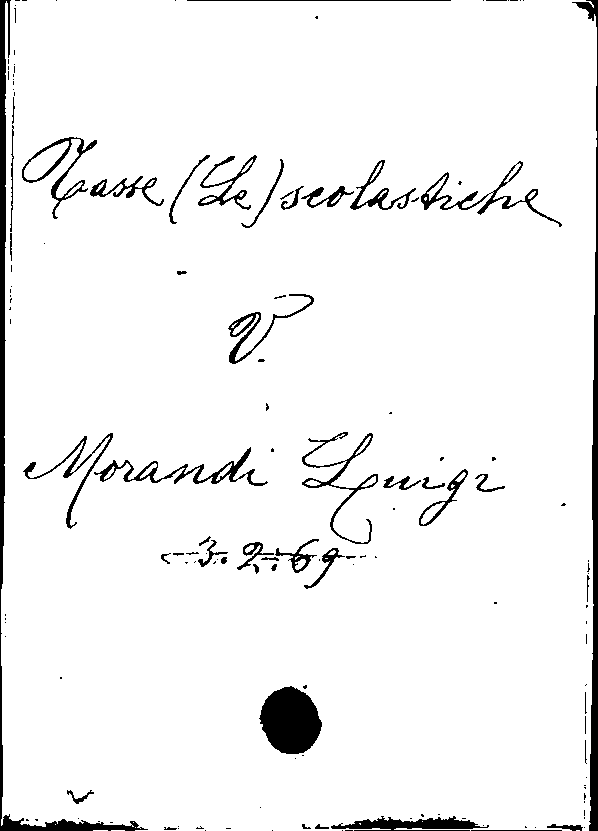 Tasse (Le) scolastiche
V.
Morandi Luigi
3.2.69